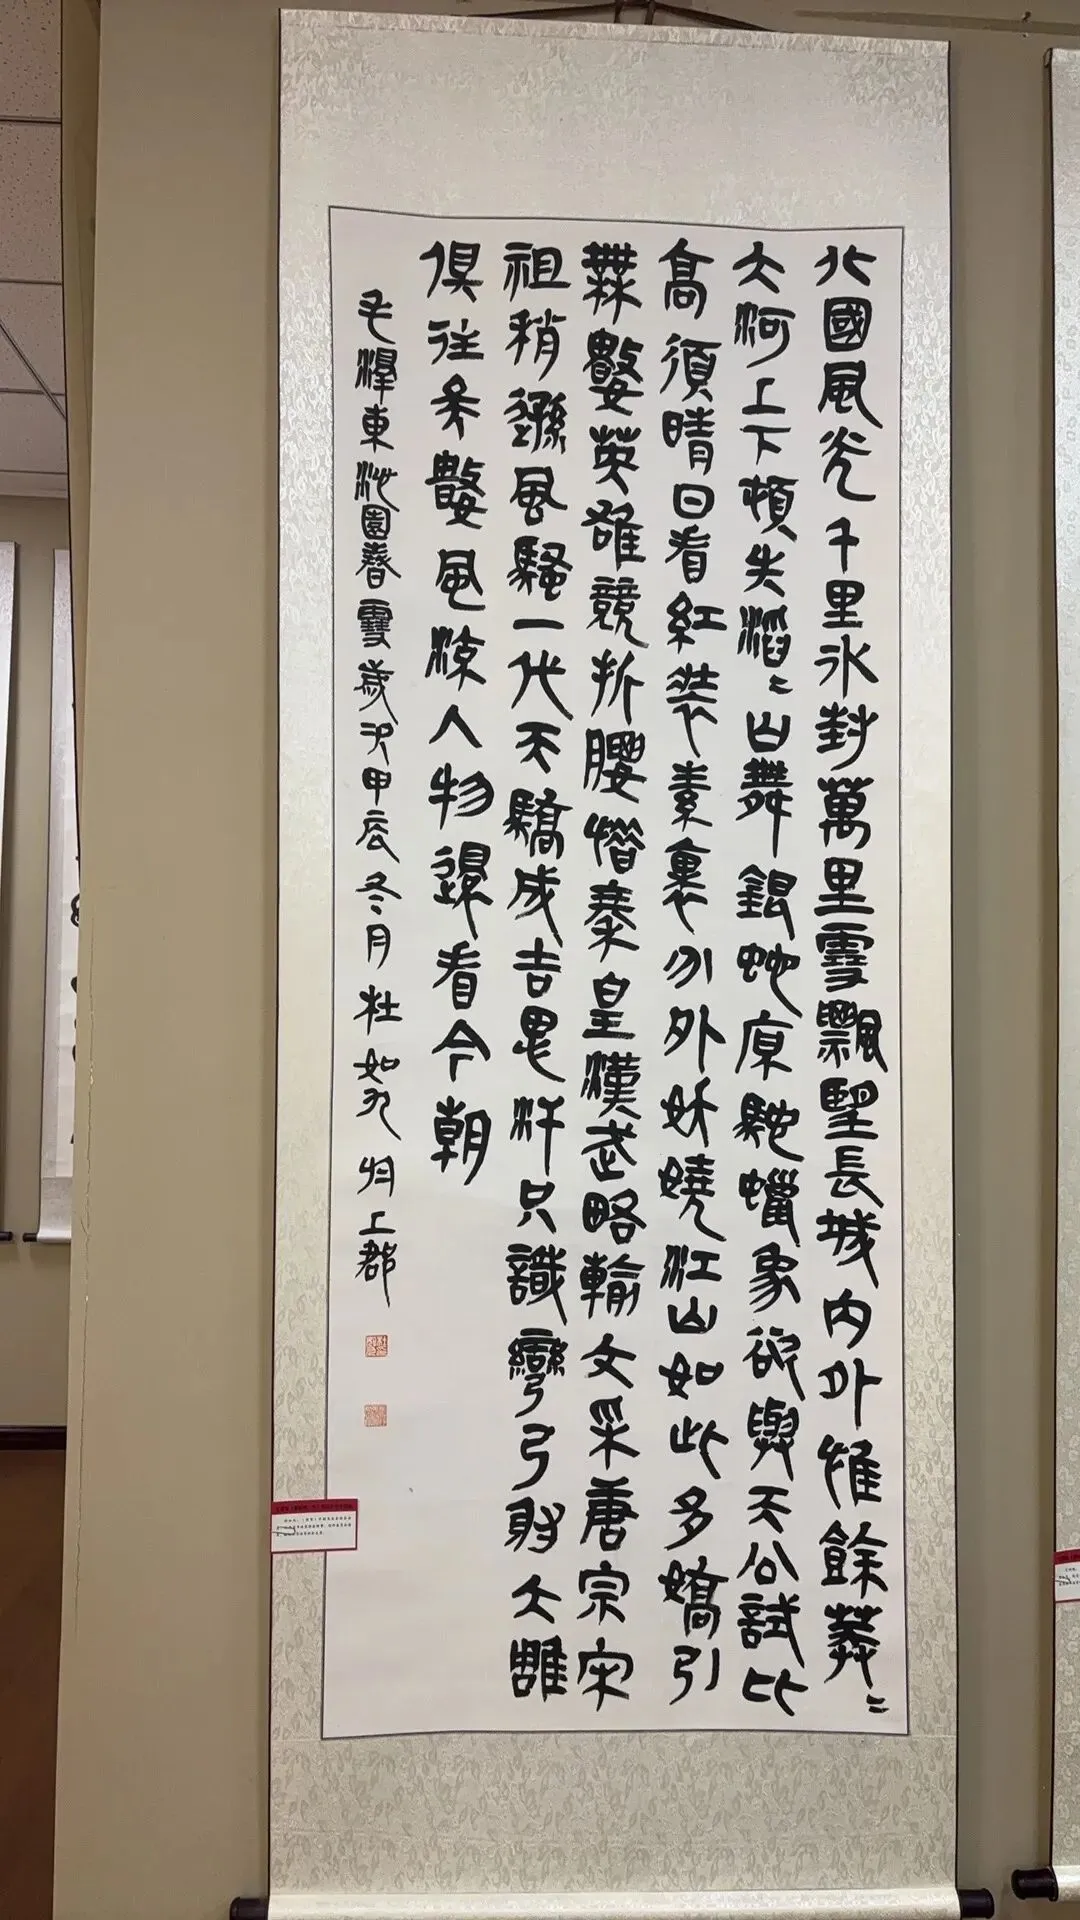 北國風光千里冰封萬里雪飄望長城內外惟餘莽〻
大河上下頓失滔〻山舞銀蛇原馳蠟象欲與天公試比
高須晴日看紅裝素裹分外妖嬈江山如此多嬌引
無數英雄競折腰惜秦皇漢武略輸文采唐宗宋
祖稍遜風騷一代天驕成吉思汗只識彎弓射大雕
俱往矣數風流人物還看今朝
毛澤東沁園春雪歲次甲辰冬月杜如九